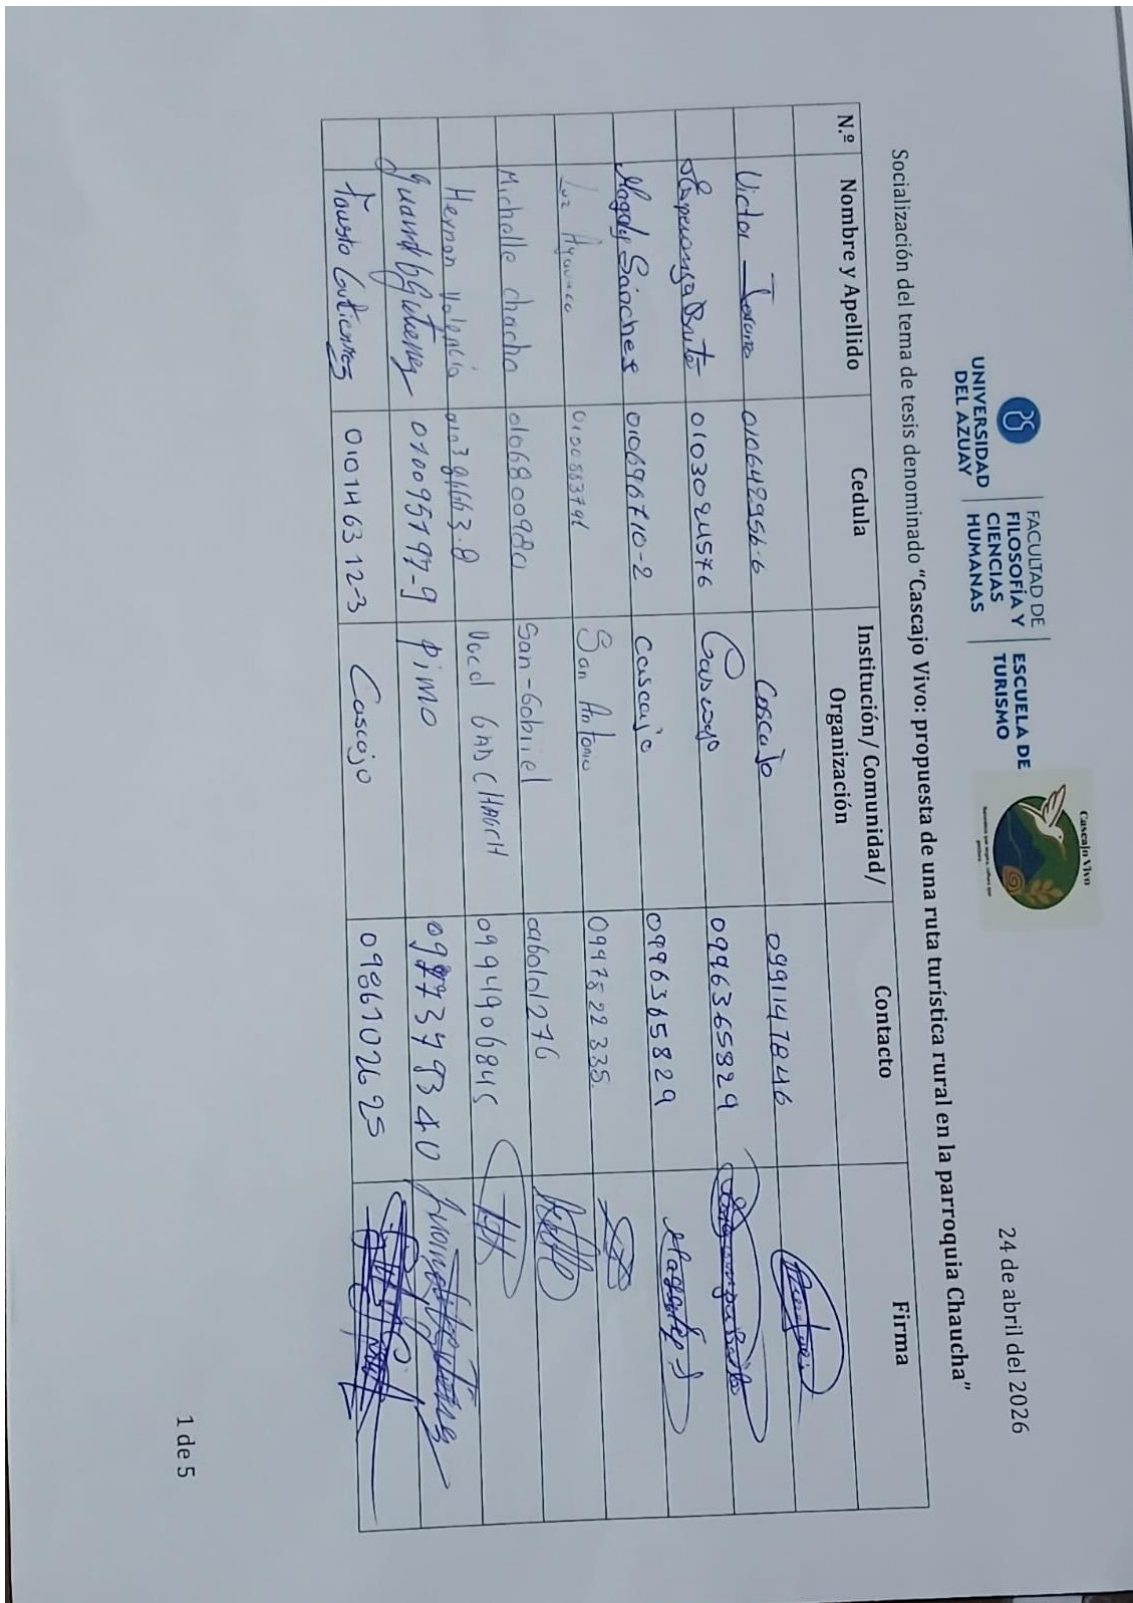 UNIVERSIDAD DEL AZUAY
FACULTAD DE FILOSOFÍA Y CIENCIAS HUMANAS
ESCUELA DE TURISMO
Cascajo Vivo
24 de abril del 2026
Socialización del tema de tesis denominado “Cascajo Vivo: propuesta de una ruta turística rural en la parroquia Chaucha”
N.º Nombre y Apellido Cedula Institución/ Comunidad/ Organización Contacto Firma
Victor 010642956-6 Cascajo 0991147846
Esperanza Brito 0103024576 Cascajo 0996365829
Magaly Sanches 010696710-2 Cascajo 0996365829
Luz San Antonio 0997822335
Michelle chacho 0106800980 San-Gabriel
Hernan Valencia Vocal GAD CHAUCH 0994906845
Gutierrez 010095197-9 pimo
Fausto Gutierrez 010146312-3 Cascajo 0986102625
1 de 5